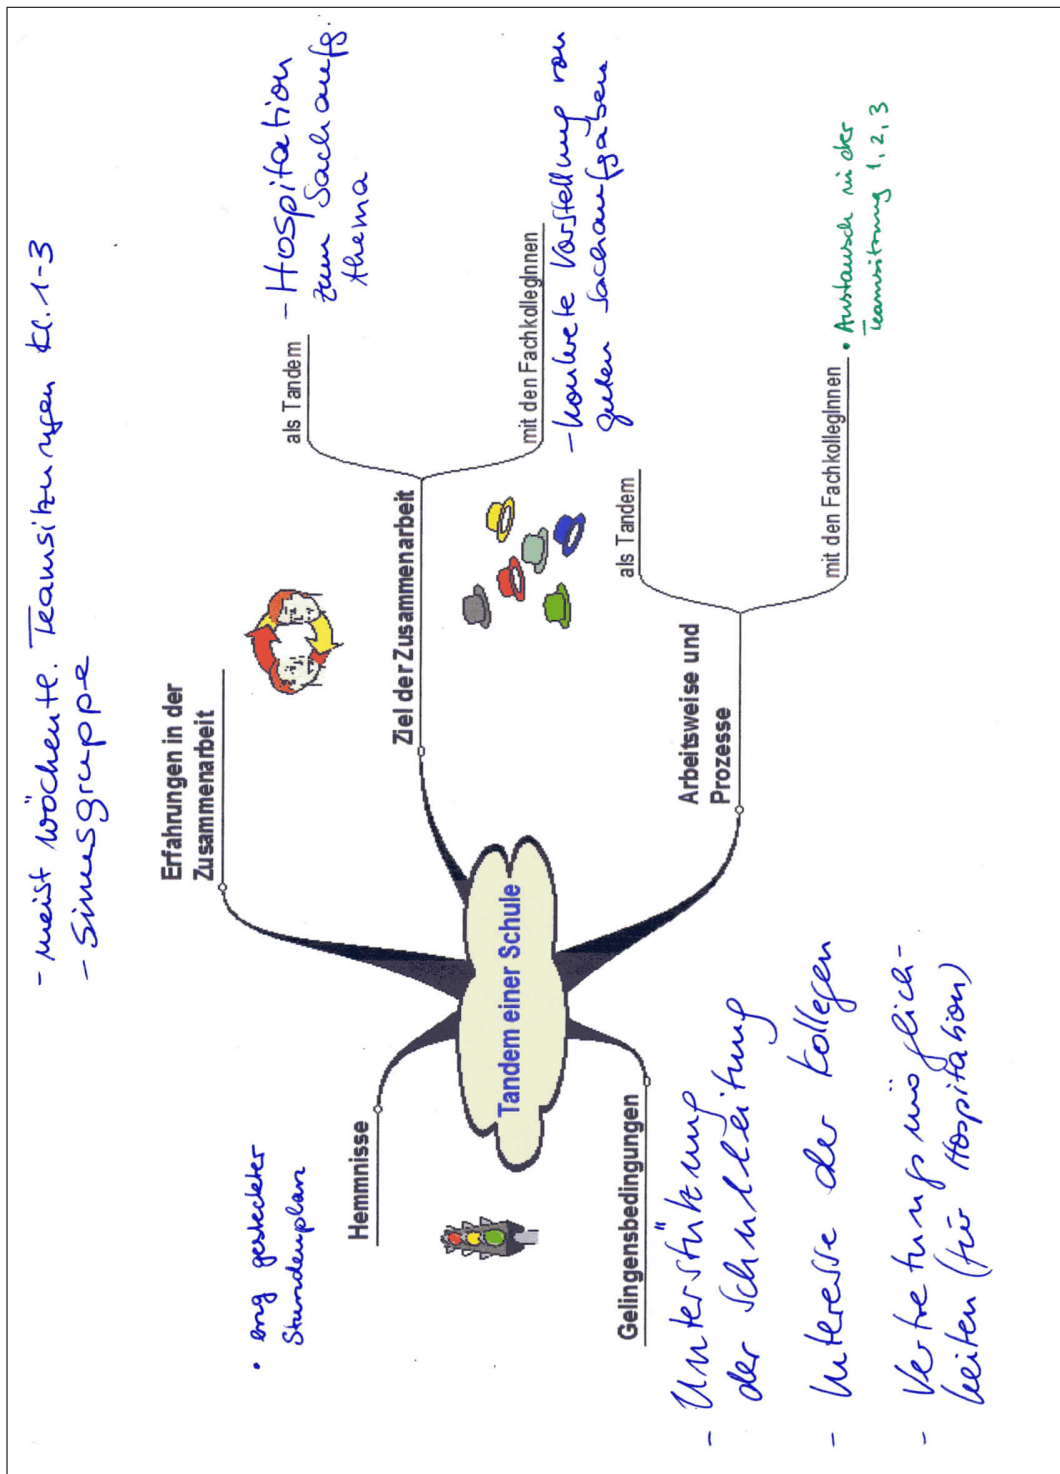 - meist wöchentl. Teamsitzungen Kl. 1-3
- Sinusgruppe
Erfahrungen in der
Zusammenarbeit
als Tandem
- Hospitation
zum Sachaufg.
thema
Ziel der Zusammenarbeit
mit den FachkollegInnen
- konkrete Vorstellung von
guten Sachaufgaben
Arbeitsweise und
Prozesse
als Tandem
mit den FachkollegInnen
• Austausch in der
Teamsitzung 1, 2, 3
Tandem einer Schule
• eng gesteckter
Stundenplan
Hemmnisse
Gelingensbedingungen
- Unterstützung
der Schulleitung
- Interesse der Kollegen
- Vertretungsmöglich-
keiten (für Hospitation)